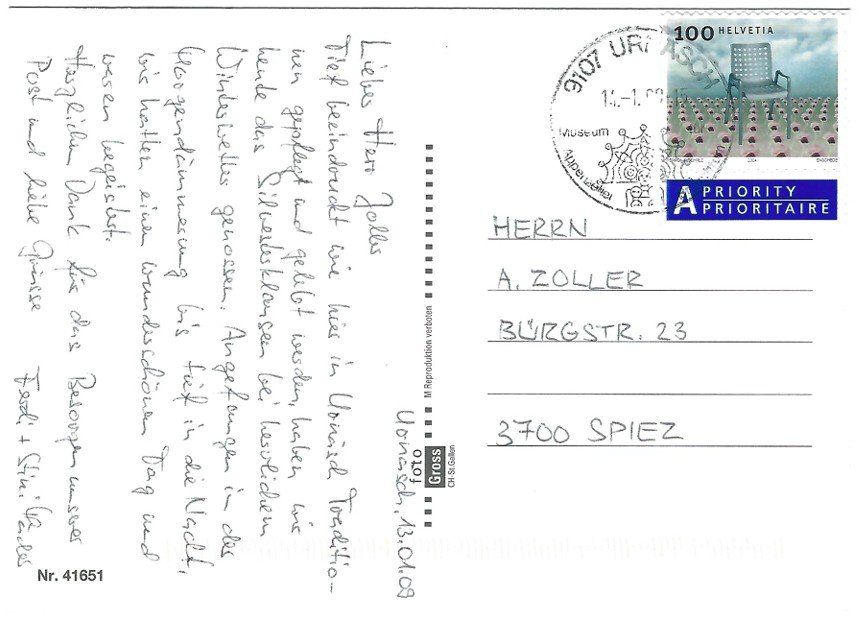 Urnäsch, 13.01.09
Lieber Herr Zoller
Tief beeindruckt wie hier in Urnäsch Traditio-
nen gepflegt und gelebt werden, haben wir
heute das Silvesterklausen bei herrlichem
Winterwetter genossen. Angefangen in der
Morgendämmerung bis tief in die Nacht.
wir hatten einen wunderschönen Tag und
waren begeistert.
Herzlichen Dank für das Besorgen unserer
Post und liebe Grüsse Ferdi +
Nr. 41651
M Reproduktion verboten
foto
Gross
CH-St.Gallen
9107 URNÄSCH
Museum
100 HELVETIA
A PRIORITY
PRIORITAIRE
HERRN
A. ZOLLER
BÜRGSTR. 23
3700 SPIEZ